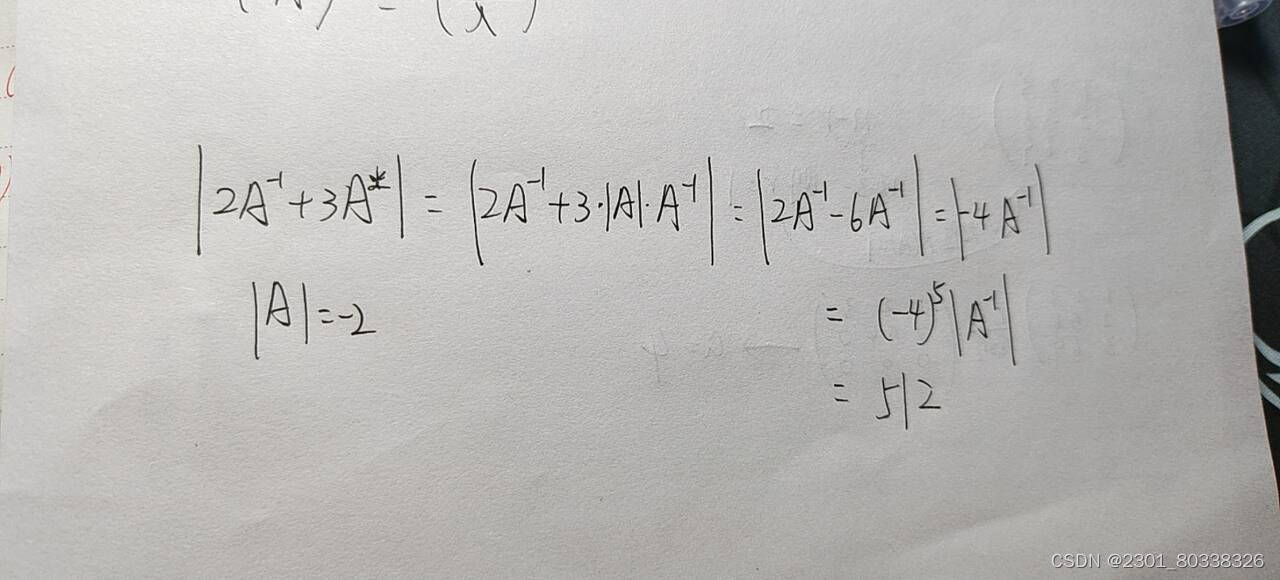 |2A⁻¹+3A*| = |2A⁻¹+3·|A|·A⁻¹| = |2A⁻¹-6A⁻¹| = |-4A⁻¹|
|A|=-2
= (-4)⁵|A⁻¹|
= 512
CSDN @2301_80338326